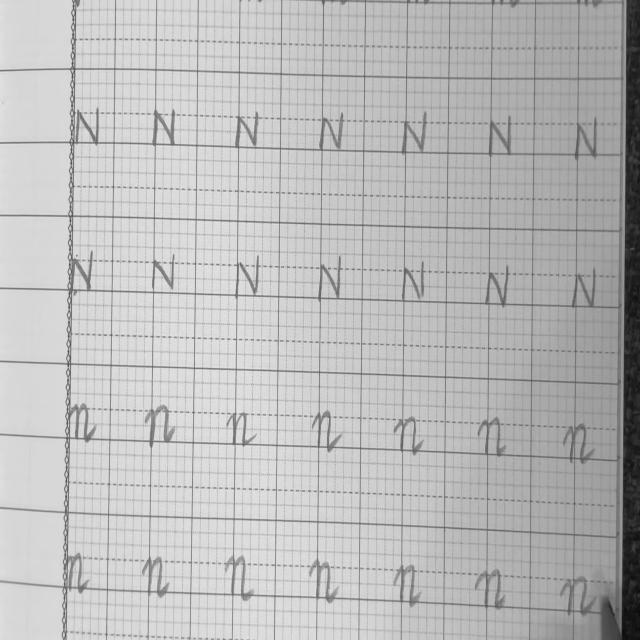 N N N N N N N
N N N N N N N
n n n n n n n
n n n n n n n